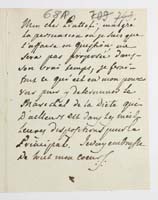 Mon cher Pontois, malgré
la persuasion où je suis que
l'affaire en question ne
sera pas proposée dans
son vrai temps, je ferai
tout ce qui est en mon pouvoir
pour y déterminer le
Maréchal de la diète qui
D'ailleurs est dans les meil-
leures dispositions pour la
Principal. Je vous embrasse
de tout mon coeur